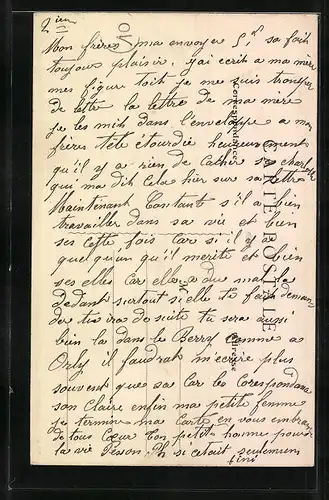 2 ieme
Mon frère ma envoyer 5 f sa fait
toujour plaisir. j'ai écrit a ma mère
mes figure toit je me suis tromper
de lettre la lettre de ma mère
je les mit dans l'enveloppe a mon
frères tête étourdie heureusement
qu'il y a rien de
qui ma dit cela hier sur sa lettre
Maintenant Constant s'il a bien
travailler dans sa vie et bien
ses cette fois car si il y a
quelqu'un qui mérite et bien
ses elle car elle a du mal la
dedant surtout si elle te fait deman-
der tu ira de suite tu sera aussi
bien la dans le Berry comme a
Orly il faudrat m'écrire plus
souvent que sa car la corespondance
son claire enfin ma petite femme
je termine ma carte en vous embrassant
de tous cœur ton petit homme pour
la vie si cetait seulement
fini
CARTE POSTALE
Correspondance
Adresse